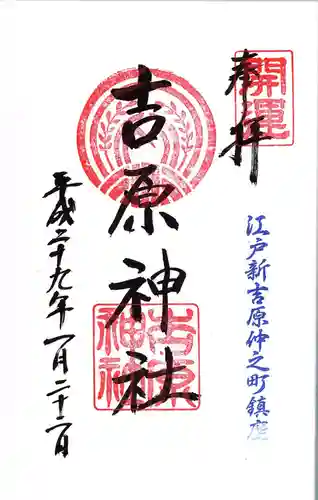 開運
奉拝
江戸新吉原仲之町鎮座
吉原神社
吉原神社
平成二十九年一月二十二日